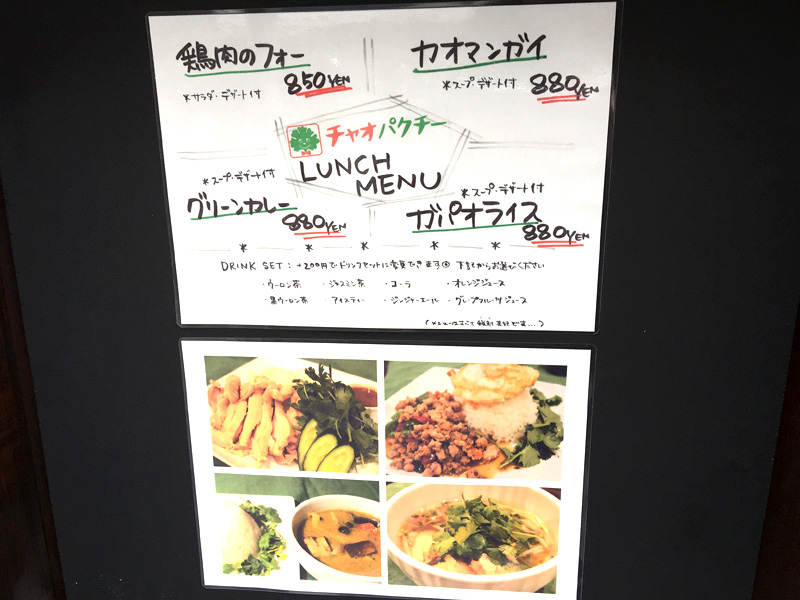 鶏肉のフォー
850YEN
*サラダ・デザート付
カオマンガイ
*スープ・デザート付
880YEN
チャオパクチー
LUNCH
MENU
*スープ・デザート付
グリーンカレー
880YEN
*スープ・デザート付
ガパオライス
880YEN
* * * * *
DRINK SET : +200円でドリンクセットに変更できます 下記からお選びください
・ウーロン茶 ・ジャスミン茶 ・コーラ ・オレンジジュース
・黒ウーロン茶 ・アイスティー ・ジンジャーエール ・グレープフルーツジュース
(メニューはすべて税別表記です...)